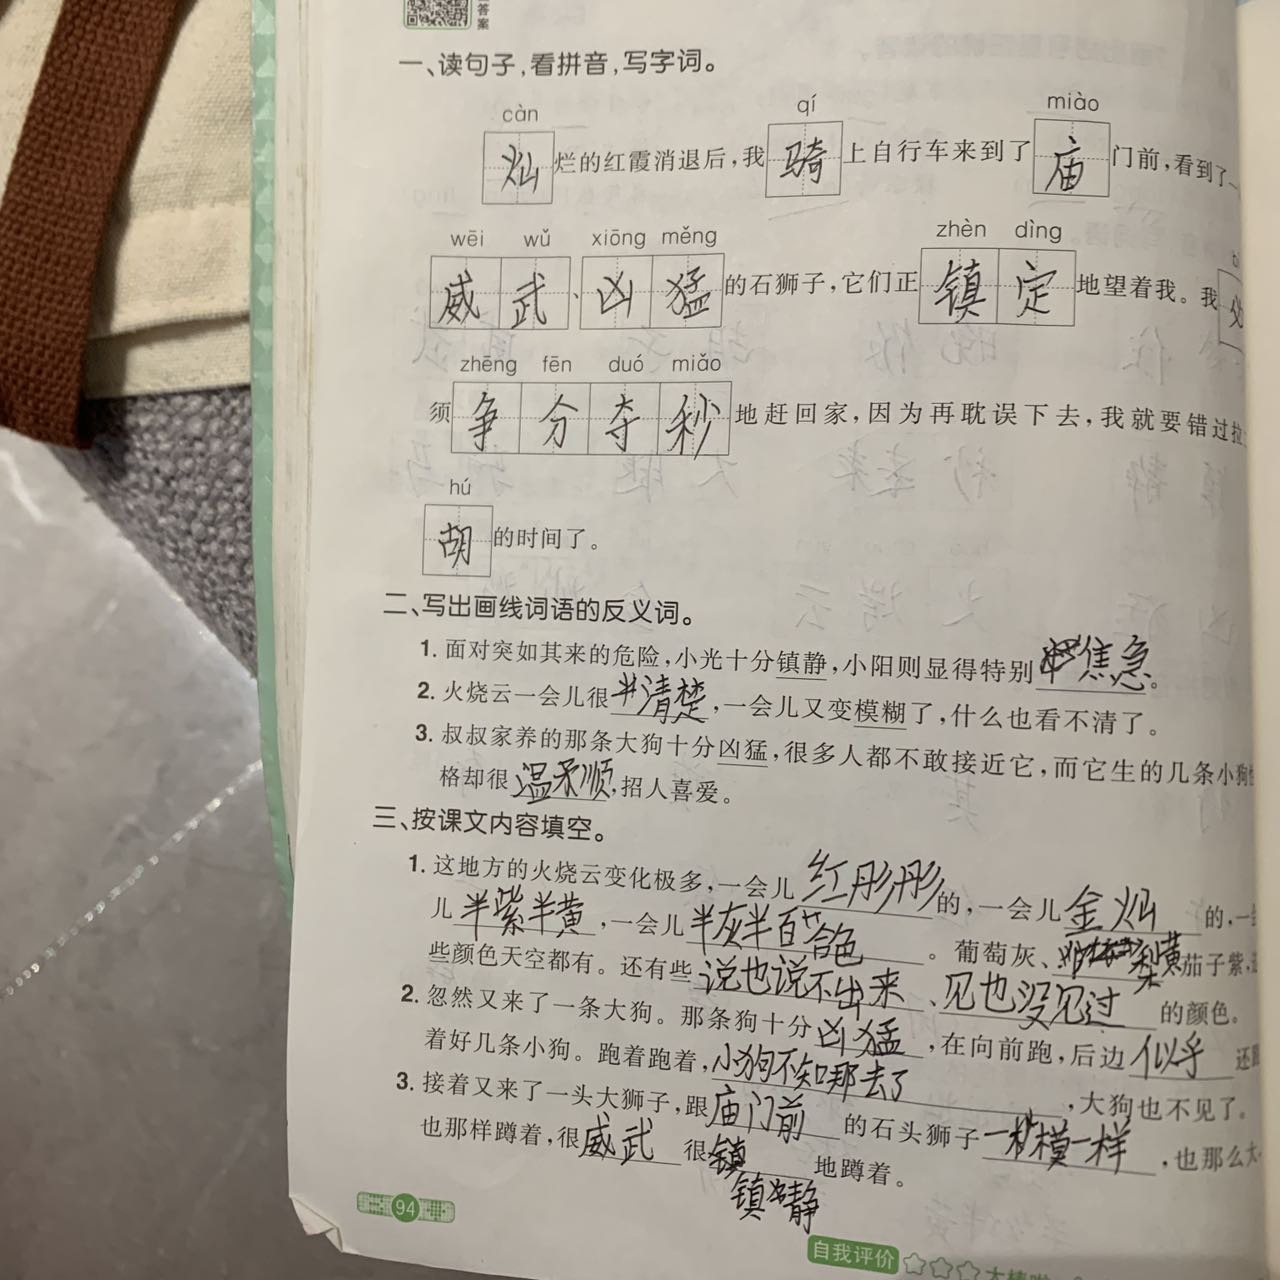 答案
一、读句子，看拼音，写字词。
càn qí miào
灿烂的红霞消退后，我骑上自行车来到了庙门前，看到了一
wēi wǔ xiōng měng zhèn dìng
威武、凶猛的石狮子，它们正镇定地望着我。我
zhēng fēn duó miǎo
须争分夺秒地赶回家，因为再耽误下去，我就要错过拉
hú
胡的时间了。
二、写出画线词语的反义词。
1. 面对突如其来的危险，小光十分镇静，小阳则显得特别焦急。
2. 火烧云一会儿很清楚，一会儿又变模糊了，什么也看不清了。
3. 叔叔家养的那条大狗十分凶猛，很多人都不敢接近它，而它生的几条小狗性
格却很温柔顺，招人喜爱。
三、按课文内容填空。
1. 这地方的火烧云变化极多，一会儿红彤彤的，一会儿金灿的，一
儿半紫半黄，一会儿半灰半百合色。葡萄灰、梨黄茄子紫，
些颜色天空都有。还有些说也说不出来、见也没见过的颜色。
2. 忽然又来了一条大狗。那条狗十分凶猛，在向前跑，后边似乎还跟
着好几条小狗。跑着跑着，小狗不知哪去了，大狗也不见了。
3. 接着又来了一头大狮子，跟庙门前的石头狮子一模一样，也那么大
也那样蹲着，很威武很镇静地蹲着。
94
自我评价